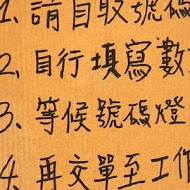 1、請自取號碼
2、自行填寫數
3、等候號碼燈
4、再交單至工作